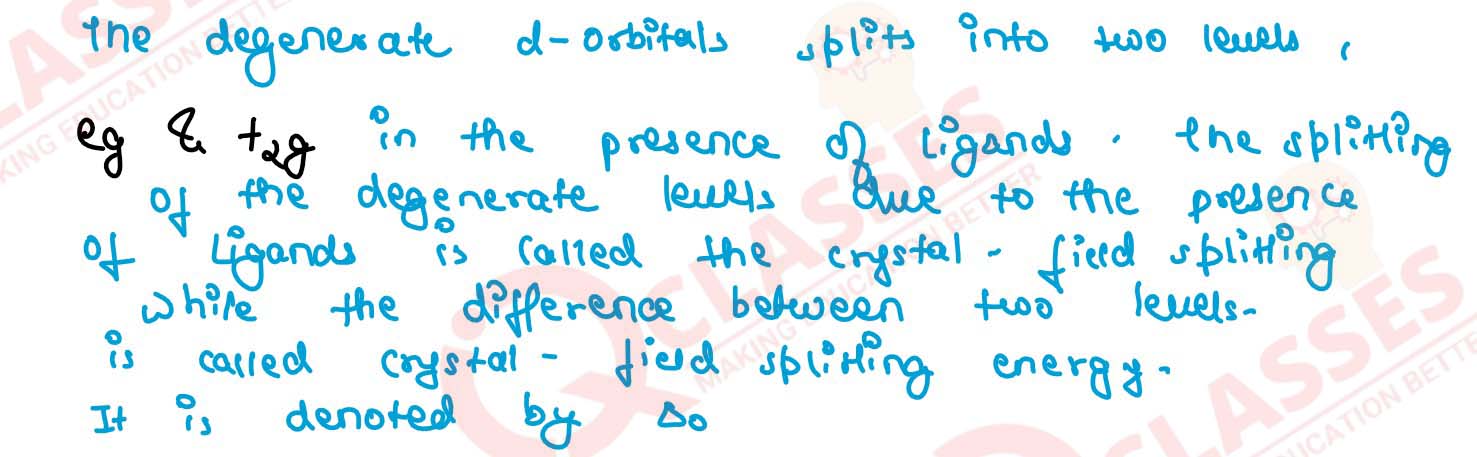 The degenerate d-orbitals splits into two levels,
eg & t2g in the presence of ligands. The splitting
of the degenerate levels due to the presence
of Ligands is called the crystal-field splitting
while the difference between two levels.
is called crystal-field splitting energy.
It is denoted by Δo